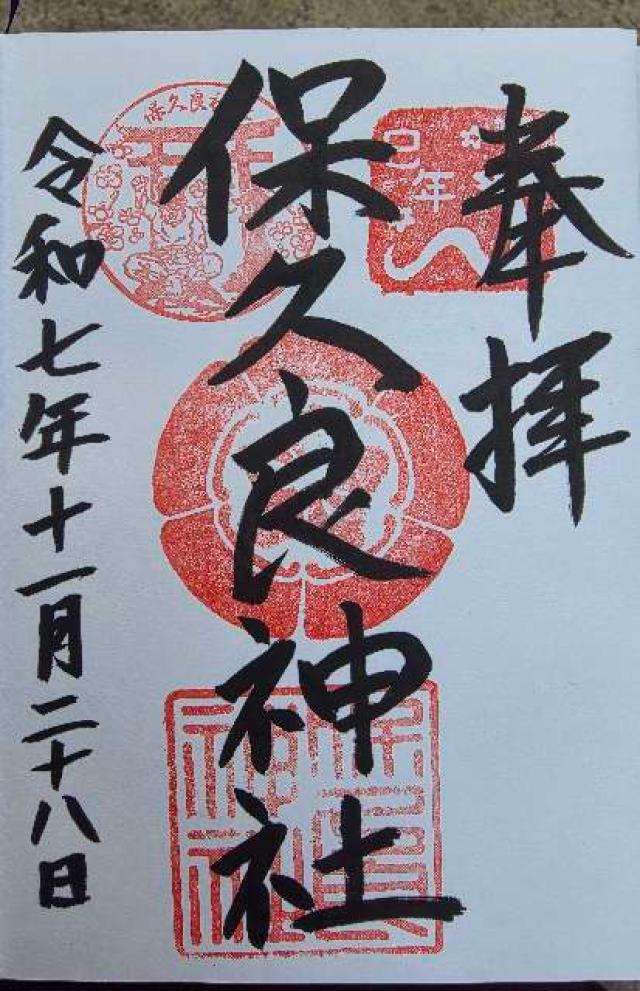 奉拝
巳年
保久良神社
令和七年十一月二十八日